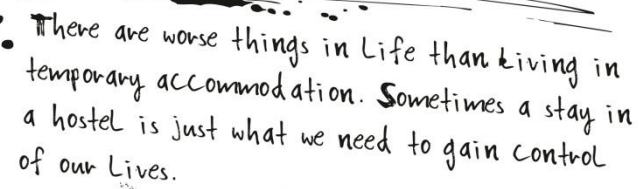 There are worse things in Life than Living in
temporary accommodation. Sometimes a stay in
a hostel is just what we need to gain control
of our Lives.